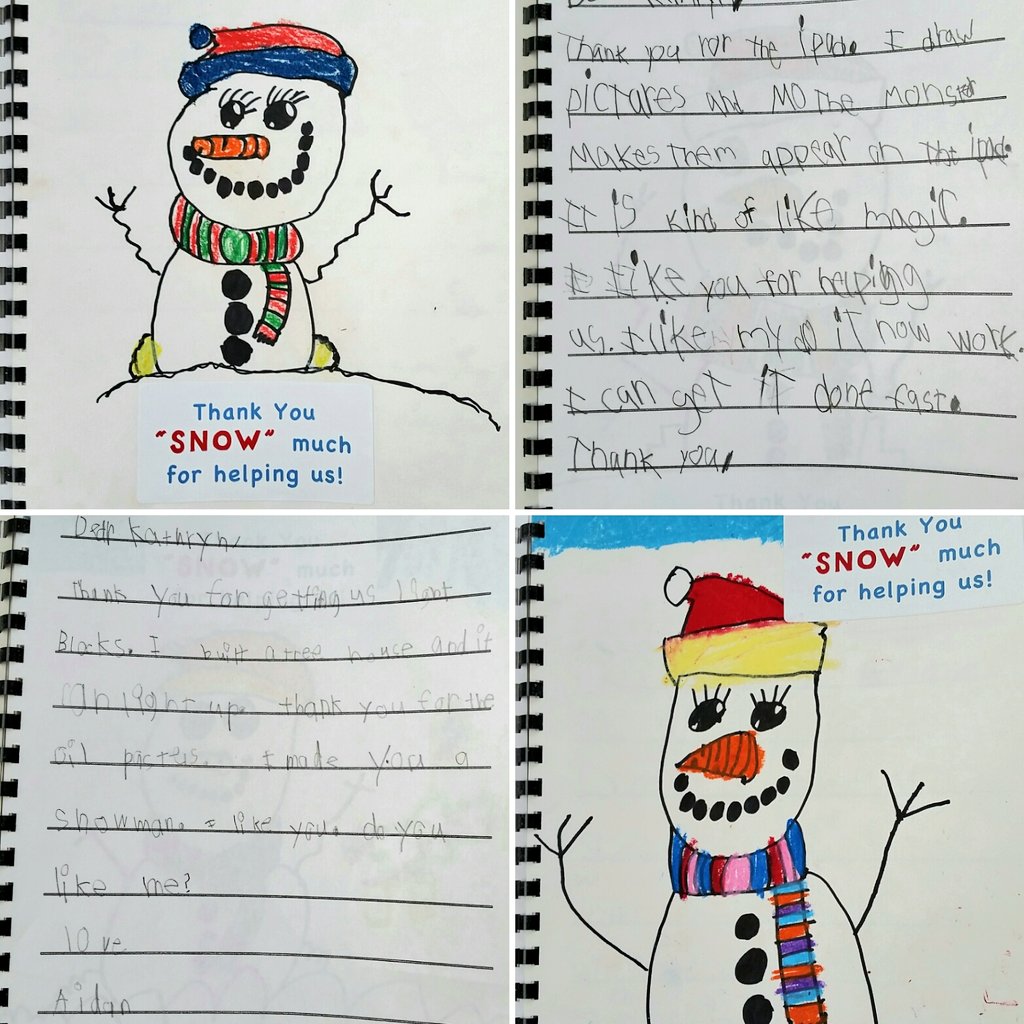 Thank You
"SNOW" much
for helping us!
Thank you for the ipad. I draw
pictures and Mo the monster
makes them appear on the ipad.
It is kind of like magic.
I like you for helping
us. I like my do it now work.
I can get it done fast.
Thank you,
Dear Kathryn,
Thank you for getting us light
Blocks. I built a tree house and it
light up. thank you for the
oil I made you a
snowman. I like you. do you
like me?
love
Aidan
Thank You
"SNOW" much
for helping us!